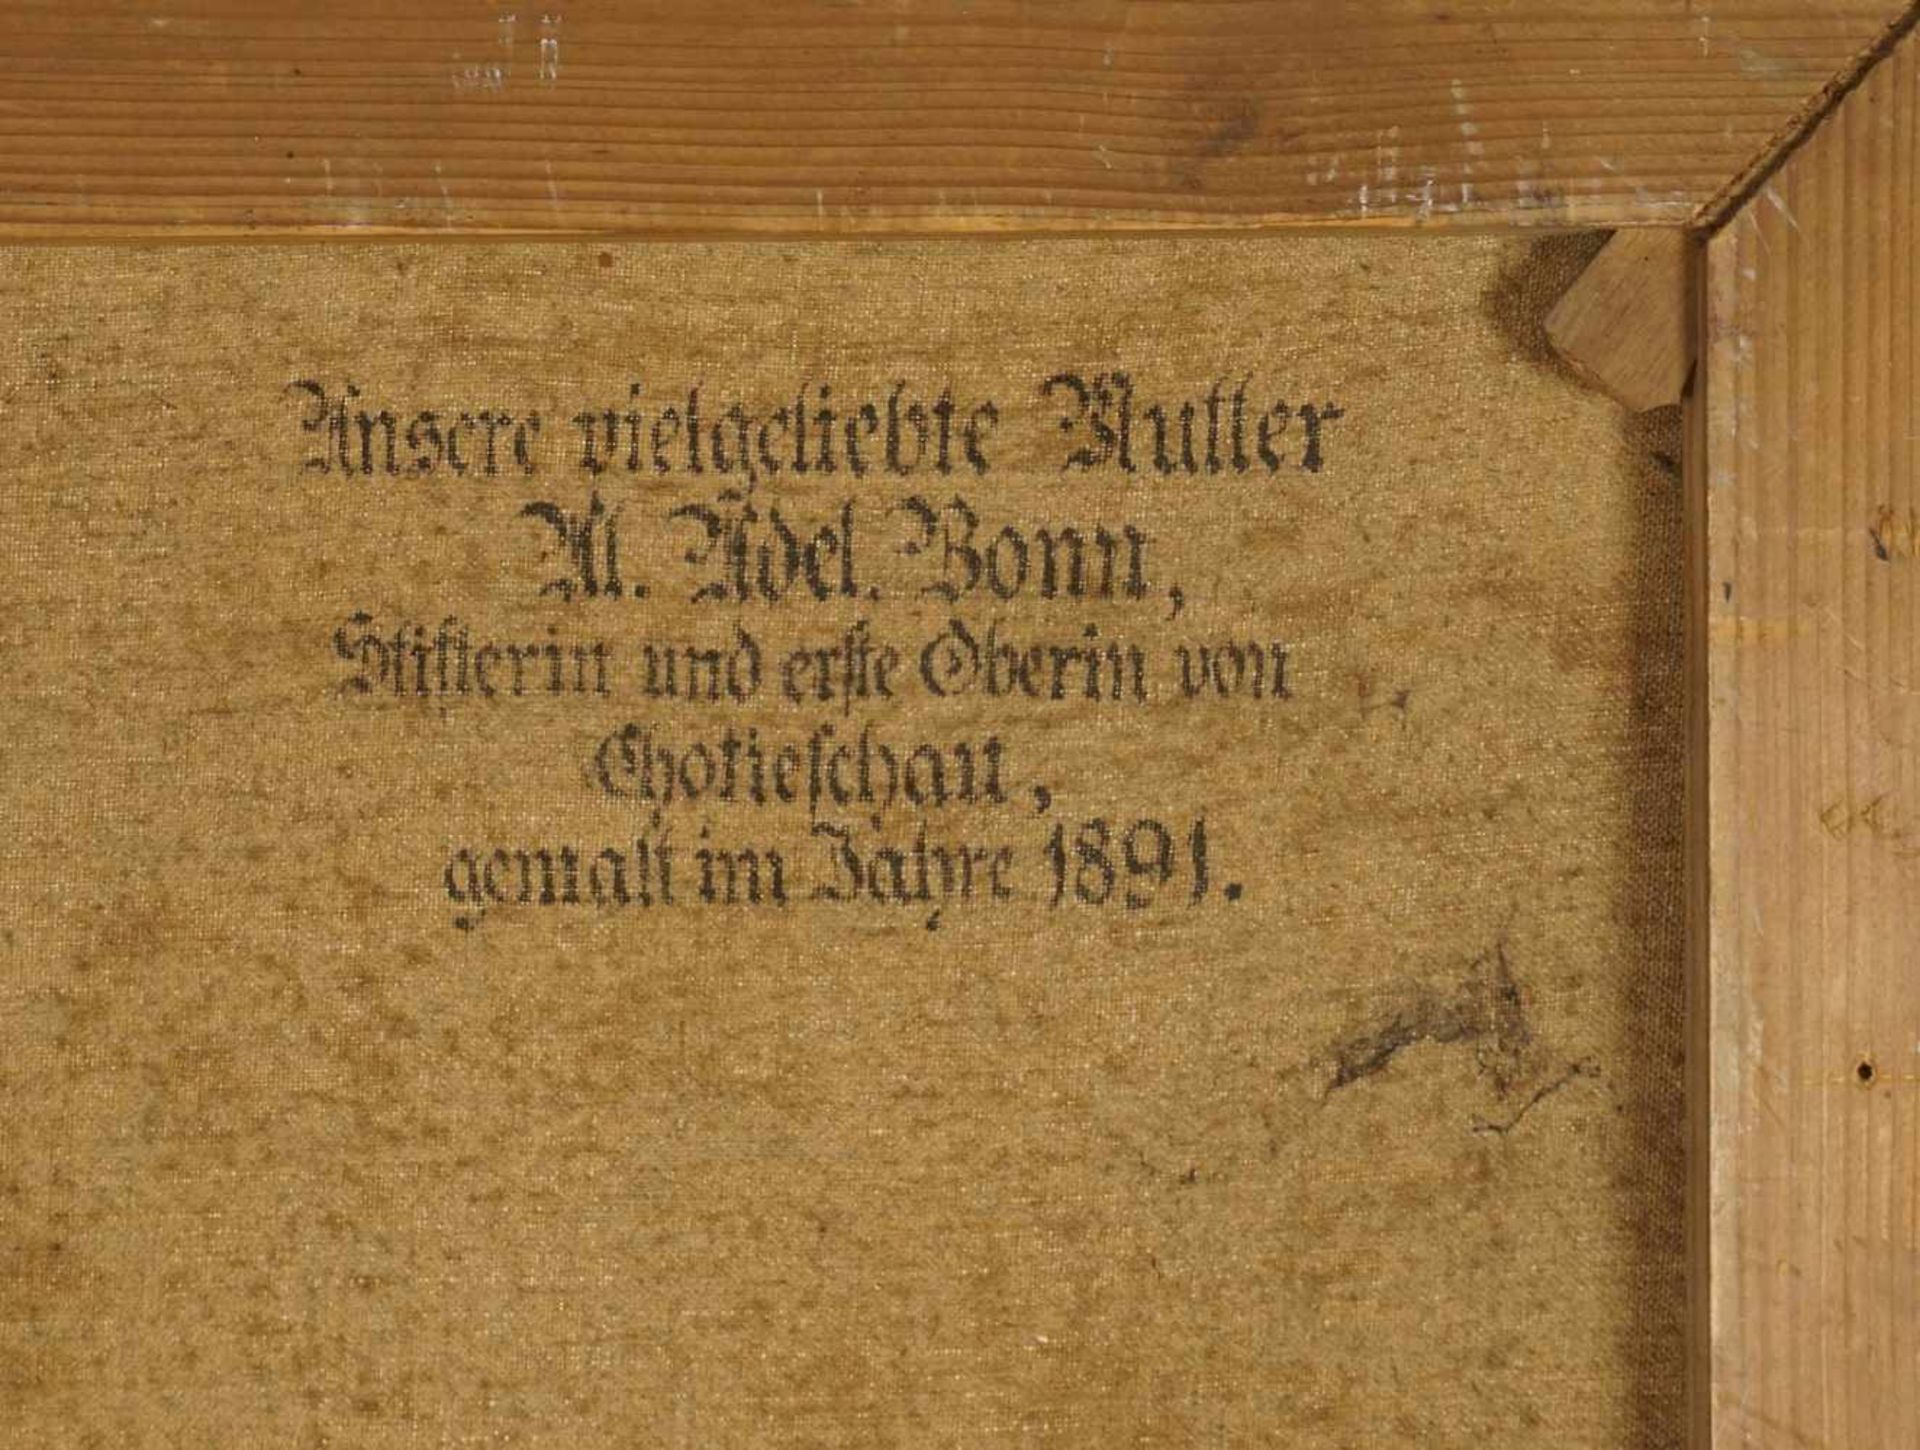 Unsere vielgeliebte Mutter
M. Adel. Bonn,
Stifterin und erste Oberin von
Chotieschau,
gemalt im Jahre 1891.